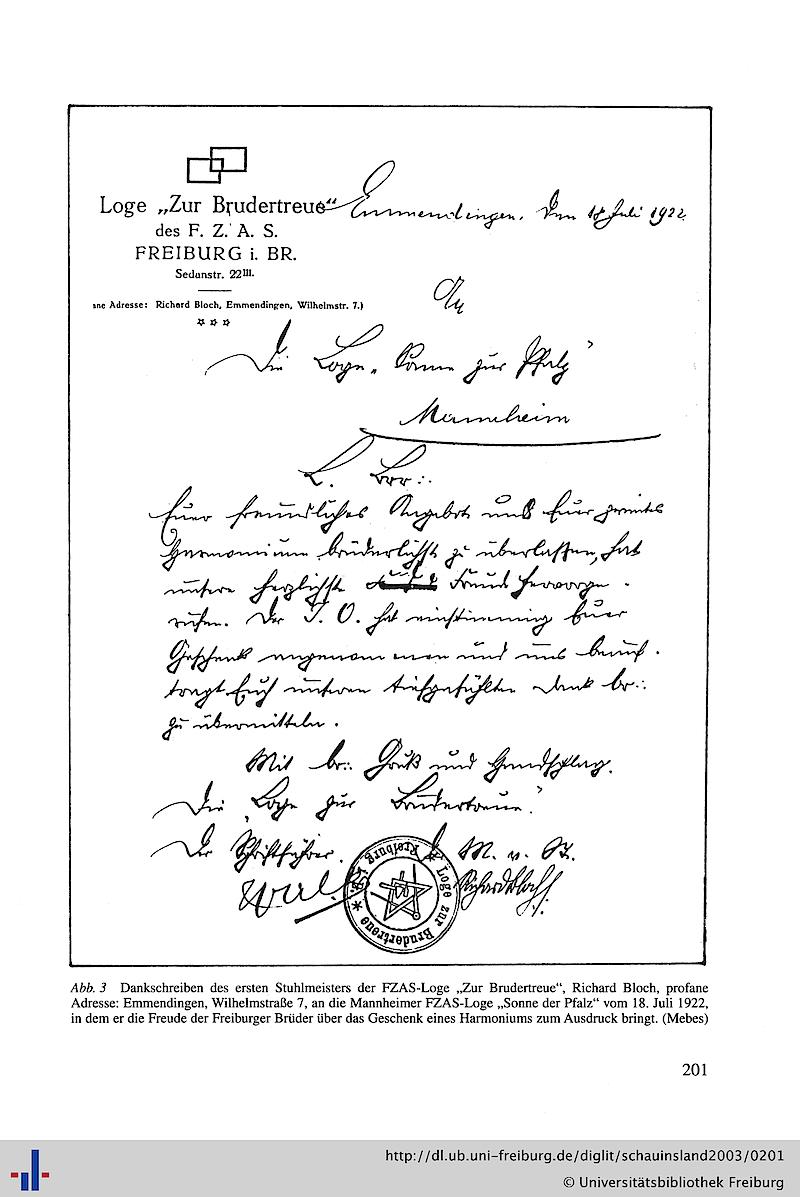 Loge „Zur Brudertreue“ Emmendingen, den 18 Juli 1922
des F. Z. A. S.
FREIBURG i. BR.
Sedanstr. 22III.
ane Adresse: Richard Bloch, Emmendingen, Wilhelmstr. 7.)
An
Die Loge „Sonne zur Pfalz“
Mannheim
L. Brr∴
Euer freundliches Angebot uns Euer
Harmonium brüderlichst zu überlassen, hat
unsere herzlichste Freude hervorge-
rufen. Der T. O. hat einstimmig Euer
Geschenk angenommen und uns beauf-
tragt Euch unseren tiefgefühlten Dank br∴
zu übermitteln.
Mit br∴ Gruß und Handschlag.
Die Loge zur Brudertreue.“
Der Schriftführer. d. M. v. St.
Richard Bloch
Loge zur Brudertreue * Freiburg i. B. *
Abb. 3 Dankschreiben des ersten Stuhlmeisters der FZAS-Loge „Zur Brudertreue“, Richard Bloch, profane
Adresse: Emmendingen, Wilhelmstraße 7, an die Mannheimer FZAS-Loge „Sonne der Pfalz“ vom 18. Juli 1922,
in dem er die Freude der Freiburger Brüder über das Geschenk eines Harmoniums zum Ausdruck bringt. (Mebes)
201
http://dl.ub.uni-freiburg.de/diglit/schauinsland2003/0201
© Universitätsbibliothek Freiburg